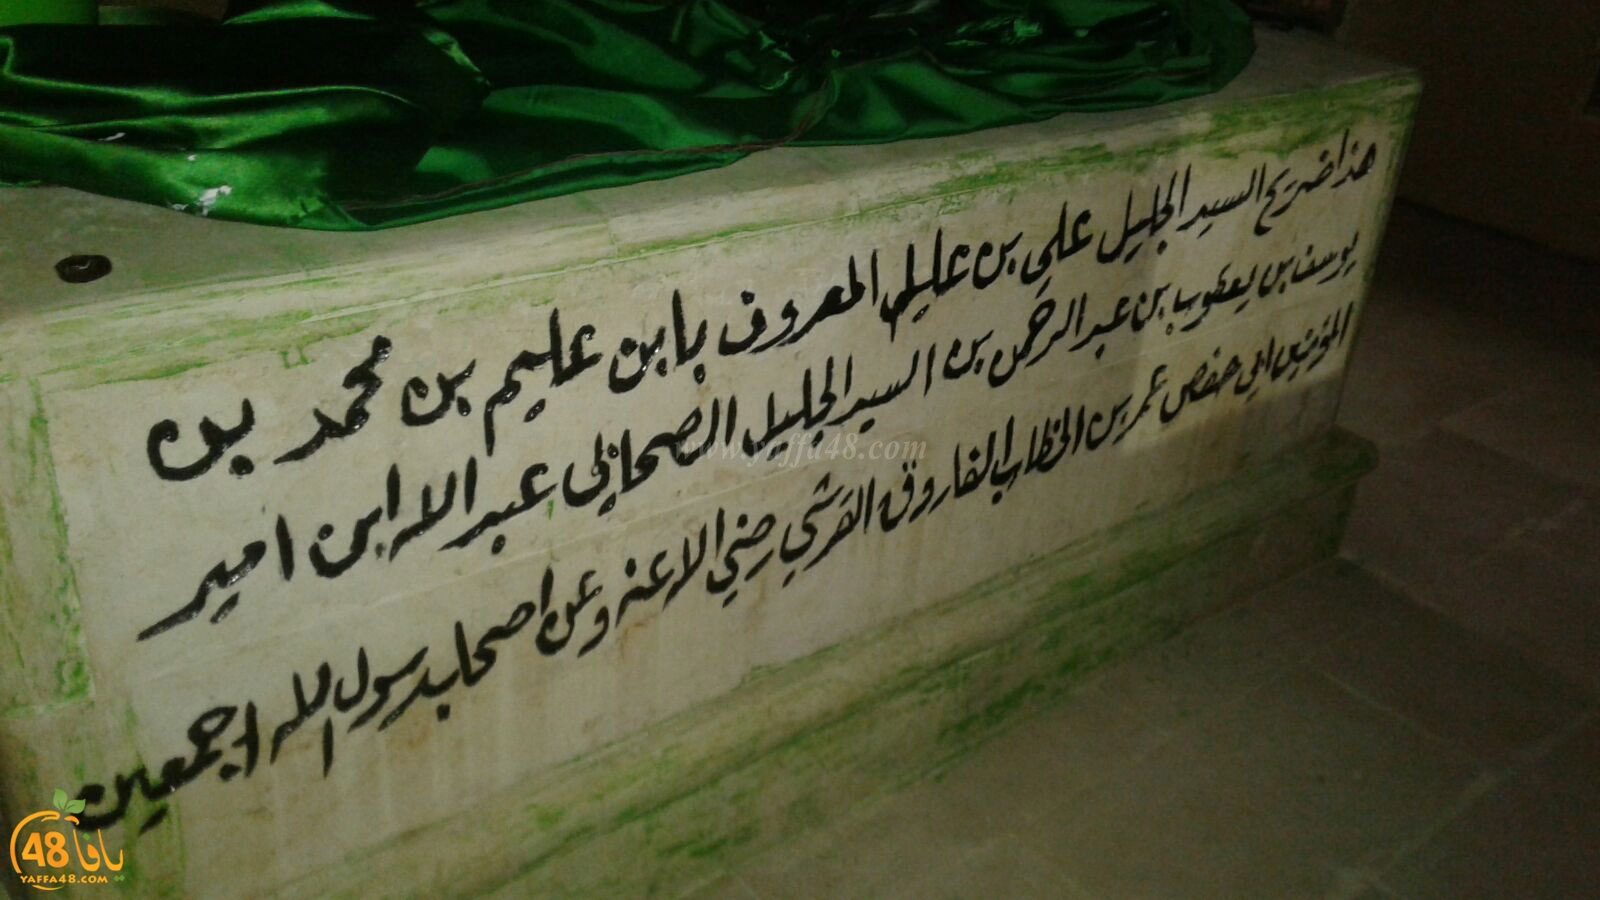 هذا ضريح السيد الجليل علي بن عليل المعروف بابن عليم بن محمد بن
يوسف بن يعقوب بن عبد الرحمن بن السيد الجليل الصحابي عبد الله ابن امير
المؤمنين ابي حفص عمر بن الخطاب الفاروق القرشي رضي الله عنه وعن اصحاب رسول الله اجمعين
www.yaffa48.com
48 يافا
YAFFA48.COM